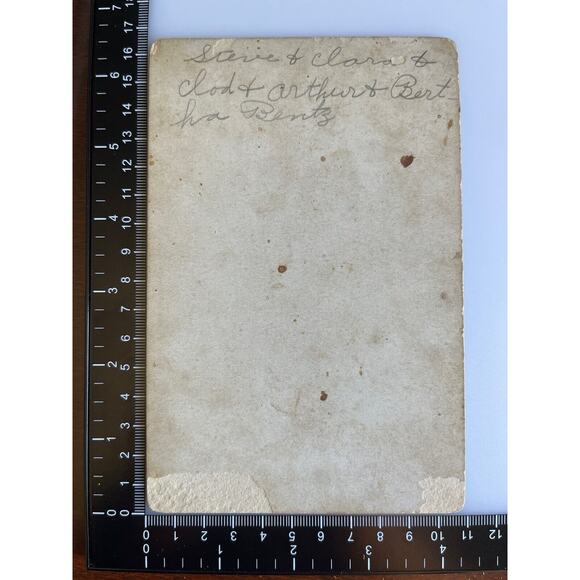 Steve & Clara &
Clod & Arthur & Bert
ha Bentz
18
17
16
15
14
13
12
11
10
9
8
7
6
5
4
3
2
1
0
7
6
5
4
3
2
1
0
0 1 2 3 4 5 6 7 8 9 10 11 12
0 1 2 3 4